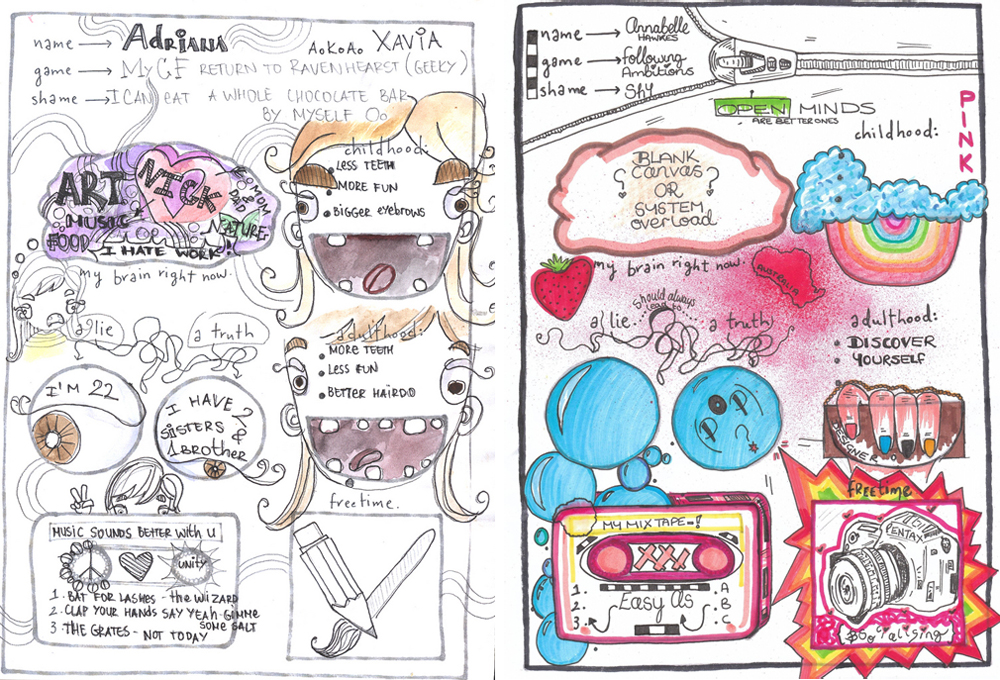 name → Adriana A.K.A. XAVIA
game → My GF RETURN TO RAVENHEARST (GEEKY)
shame → I CAN EAT A WHOLE CHOCOLATE BAR
BY MYSELF Oo
ART
NICK
MUSIC
FOOD
NATURE
I HATE WORK!
my brain right now.
childhood:
LESS TEETH
MORE FUN
BIGGER eyebrows
a lie
a truth
I'M 22
I HAVE 2
SISTERS &
1 BROTHER
adulthood:
MORE TEETH
LESS FUN
BETTER HAIRDO
freetime.
MUSIC SOUNDS BETTER with U
UNITY
1. BAT FOR LASHES - the WIZARD
2. CLAP YOUR HANDS SAY YEAH - GIMME
SOME SALT
3. THE GRATES - NOT TODAY
name → Annabelle
HAWKES
game → Following
Ambitions
shame → Shy
OPEN MINDS
ARE BETTER ONES
PINK
childhood:
BLANK
Canvas
? OR ?
SYSTEM
overload
my brain right now.
AUSTRALIA
should always
lead to
a lie
a truth
adulthood:
DISCOVER
YOURSELF
DESIGNER
freetime
MY MIX TAPE-!
XXX
1. A
2. Easy As B
3. C
PENTAX
$Socialising